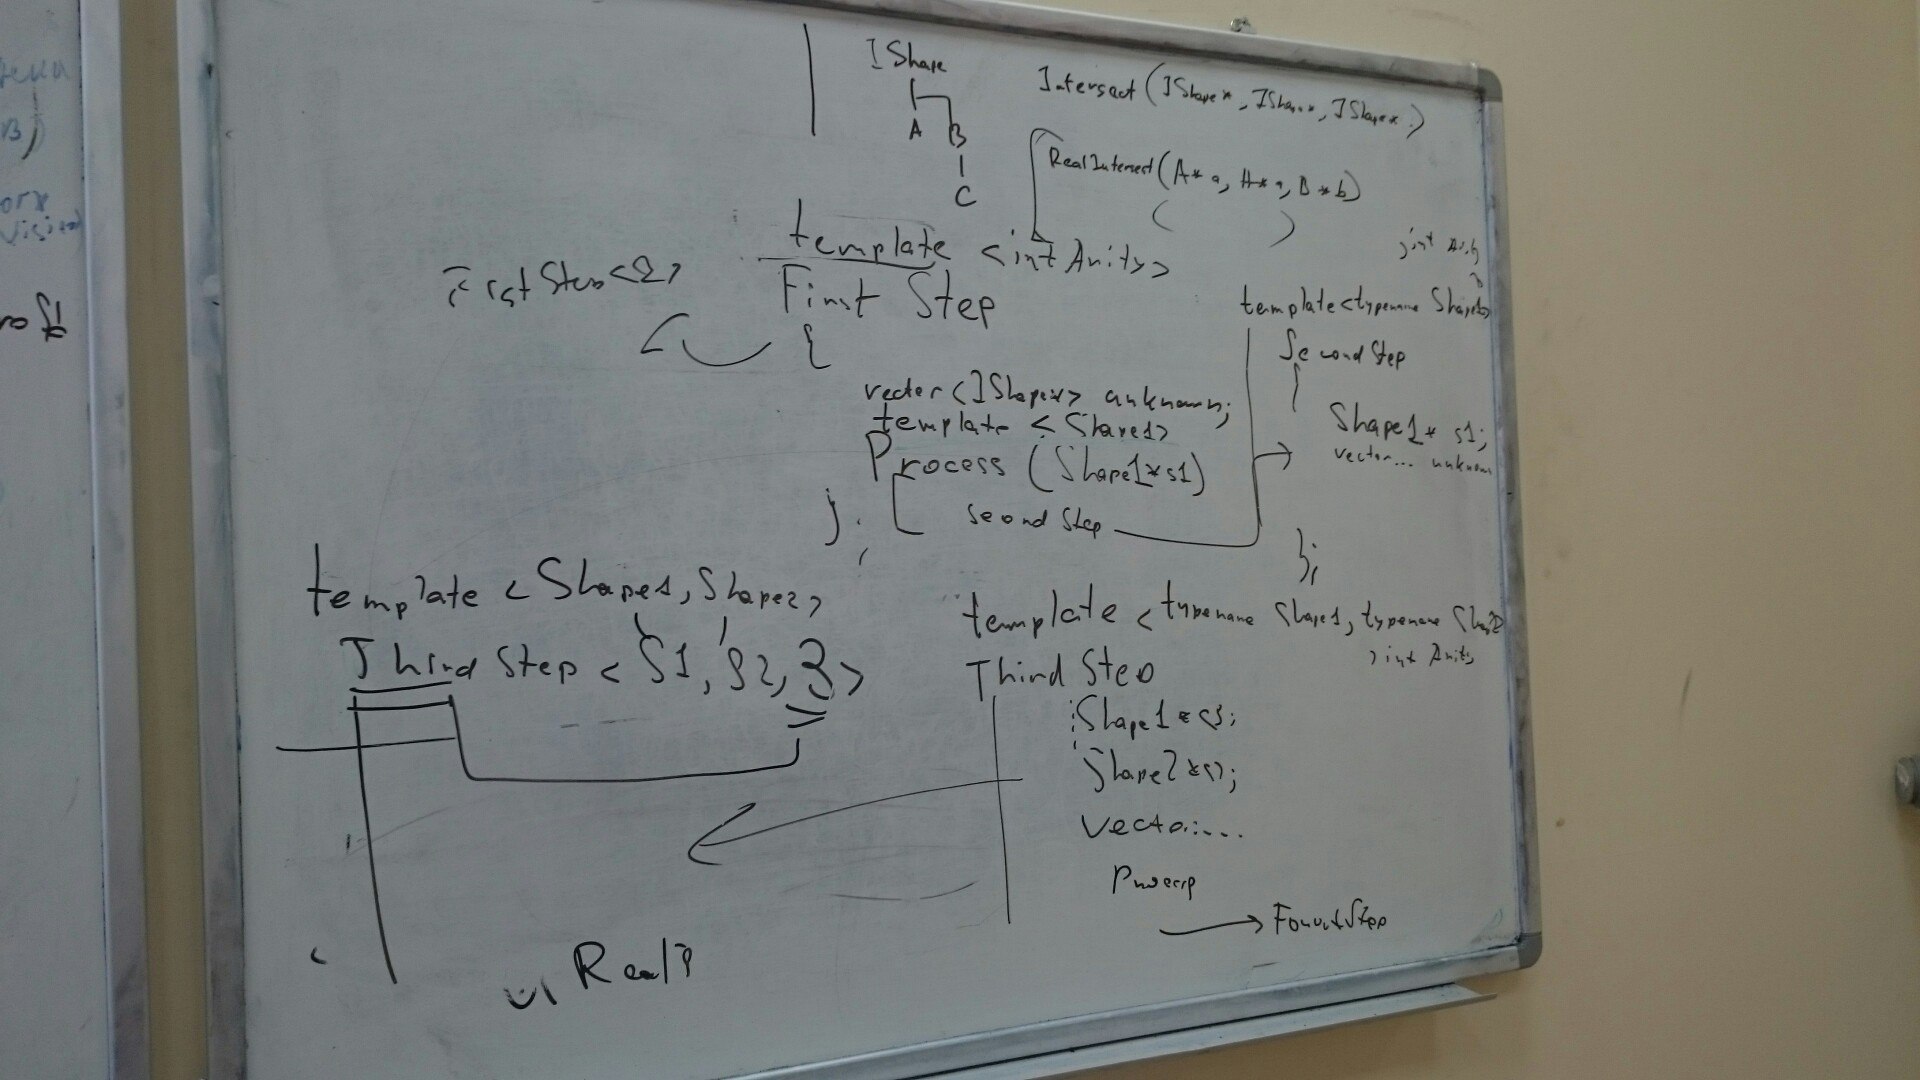 IShape
A B
C
Intersect (IShape*, IShape*, IShape*)
RealIntersect (A* a, A* a, B* b)
template <int Arity>
First Step
{
FirstStep<2>
vector<IShape*> unknown;
template <Shape1>
Process (Shape1* s1)
Second Step
};
, int Arity
template<typename Shape1>
Second Step
{
Shape1* s1;
vector... unknown
};
template <Shape1, Shape2>
Third Step <S1, S2, 3>
template <typename Shape1, typename Shape2
, int Arity
Third Step
Shape1*
Shape2*
vector...
Process
FourthStep
Real